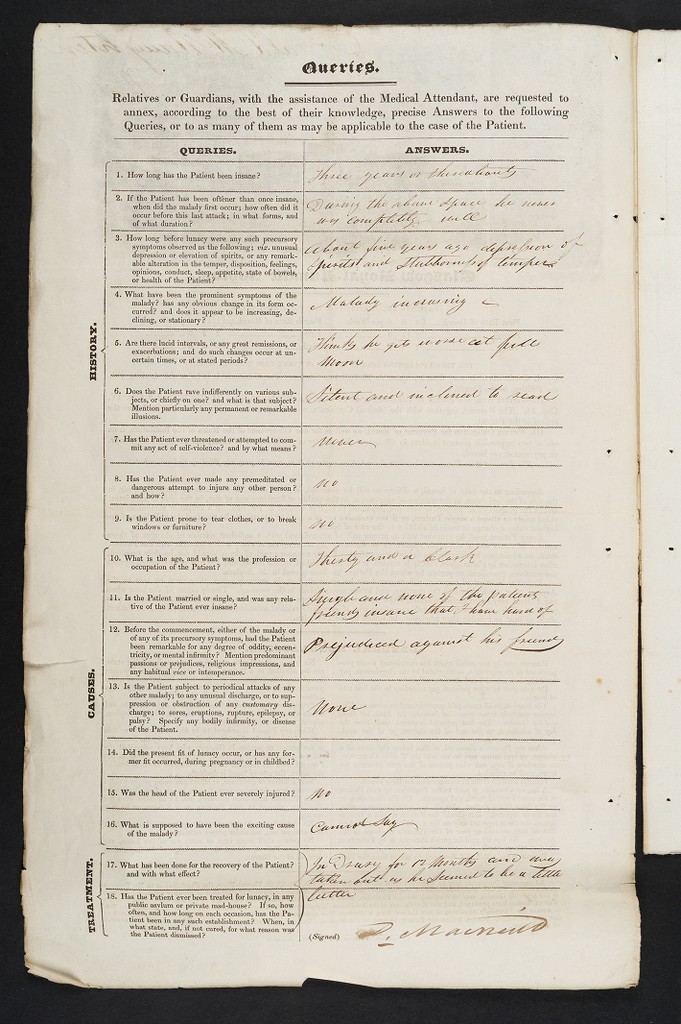 Queries.
Relatives or Guardians, with the assistance of the Medical Attendant, are requested to
annex, according to the best of their knowledge, precise Answers to the following
Queries, or to as many of them as may be applicable to the case of the Patient.
QUERIES.
ANSWERS.
HISTORY.
1. How long has the Patient been insane?
Three years or thereabouts
2. If the Patient has been oftener than once insane,
when did the malady first occur; how often did it
occur before this last attack; in what forms, and
of what duration?
During the above space he never
was completely well
3. How long before lunacy were any such precursory
symptoms observed as the following; viz. unusual
depression or elevation of spirits, or any remark-
able alteration in the temper, disposition, feelings,
opinions, conduct, sleep, appetite, state of bowels,
or health of the Patient?
about five years ago depression of
spirits and Stubborness of temper
4. What have been the prominent symptoms of the
malady? has any obvious change in its form oc-
curred? and does it appear to be increasing, de-
clining, or stationary?
Malady increasing
5. Are there lucid intervals, or any great remissions, or
exacerbations; and do such changes occur at un-
certain times, or at stated periods?
Thinks he gets worse at full
Moon
6. Does the Patient rave indifferently on various sub-
jects, or chiefly on one? and what is that subject?
Mention particularly any permanent or remarkable
illusions.
Silent and inclined to read
7. Has the Patient ever threatened or attempted to com-
mit any act of self-violence? and by what means?
Never
8. Has the Patient ever made any premeditated or
dangerous attempt to injure any other person?
and how?
no
9. Is the Patient prone to tear clothes, or to break
windows or furniture?
no
CAUSES.
10. What is the age, and what was the profession or
occupation of the Patient?
Thirty and a Clerk
11. Is the Patient married or single, and was any rela-
tive of the Patient ever insane?
Single and none of the patients
friends insane that I have heard of
12. Before the commencement, either of the malady or
of any of its precursory symptoms, had the Patient
been remarkable for any degree of oddity, eccen-
tricity, or mental infirmity? Mention predominant
passions or prejudices, religious impressions, and
any habitual vice or intemperance.
Prejudiced against his friends
13. Is the Patient subject to periodical attacks of any
other malady; to any unusual discharge, or to sup-
pression or obstruction of any customary dis-
charge; to sores, eruptions, rupture, epilepsy, or
palsy? Specify any bodily infirmity, or disease
of the Patient.
None
14. Did the present fit of lunacy occur, or has any for-
mer fit occurred, during pregnancy or in childbed?
15. Was the head of the Patient ever severely injured?
No
16. What is supposed to have been the exciting cause
of the malady?
Cannot Say
TREATMENT.
17. What has been done for the recovery of the Patient?
and with what effect?
In for 12 Months and was
taken out as he seemed to be a little
better
18. Has the Patient ever been treated for lunacy, in any
public asylum or private mad-house? If so, how
often, and how long on each occasion, has the Pa-
tient been in any such establishment? When, in
what state, and, if not cured, for what reason was
the Patient dismissed?
(Signed)